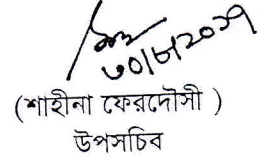 ৩০/৮/২০২১
(শাহীনা ফেরদৌসী )
উপসচিব